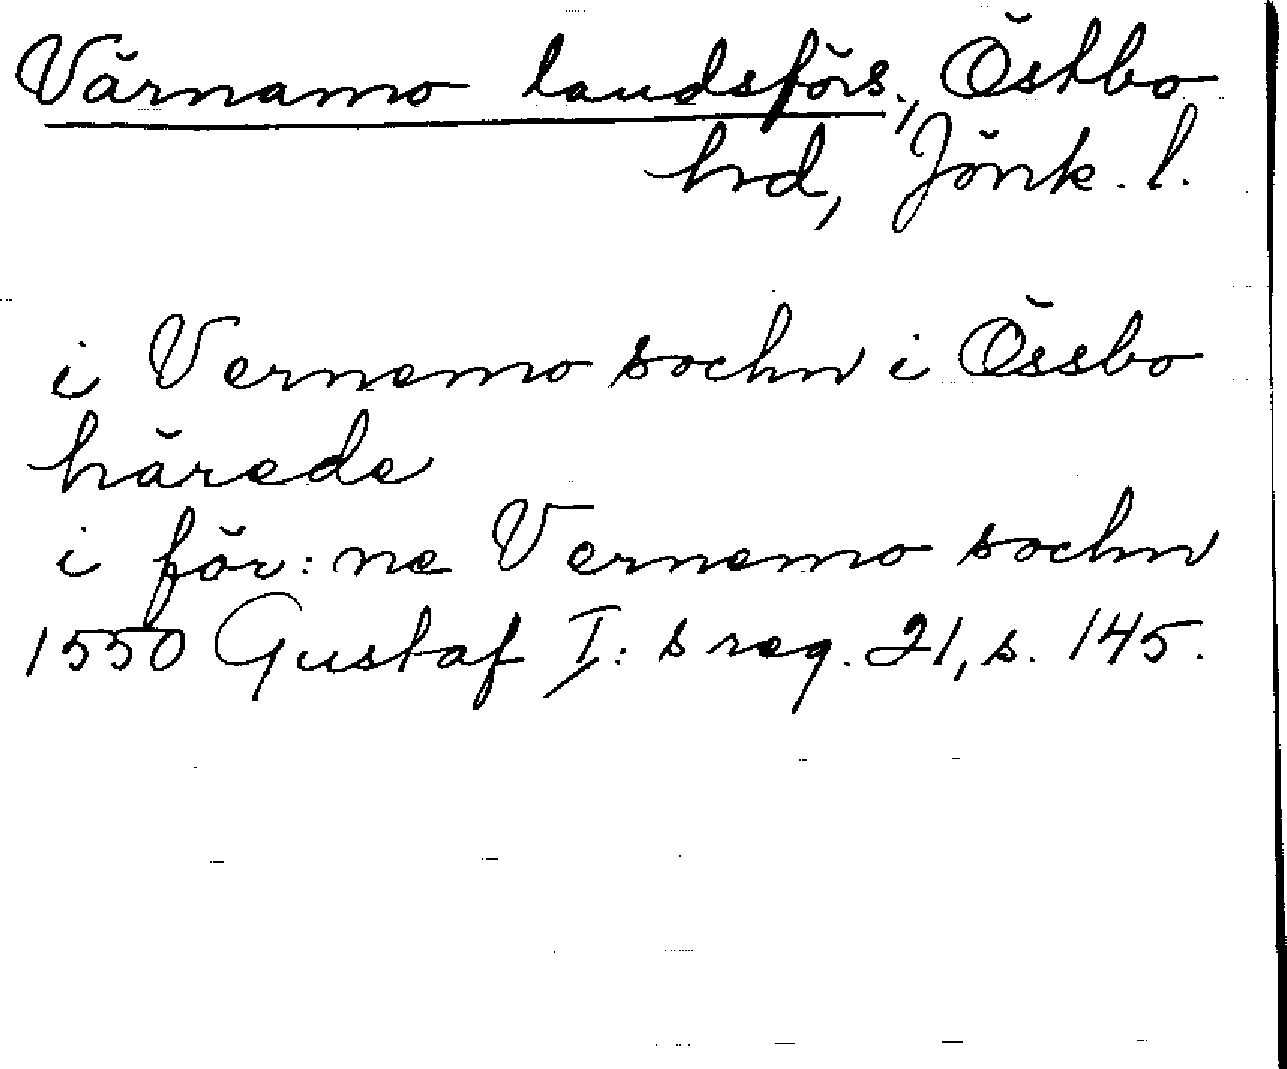 Värnamo landsförs., Östbo
hrd, Jönk. l.
i Vernemo sochn i Össbo
härede
i för:ne Vernemo sochn
1550 Gustaf I:s reg. 21, s. 145.